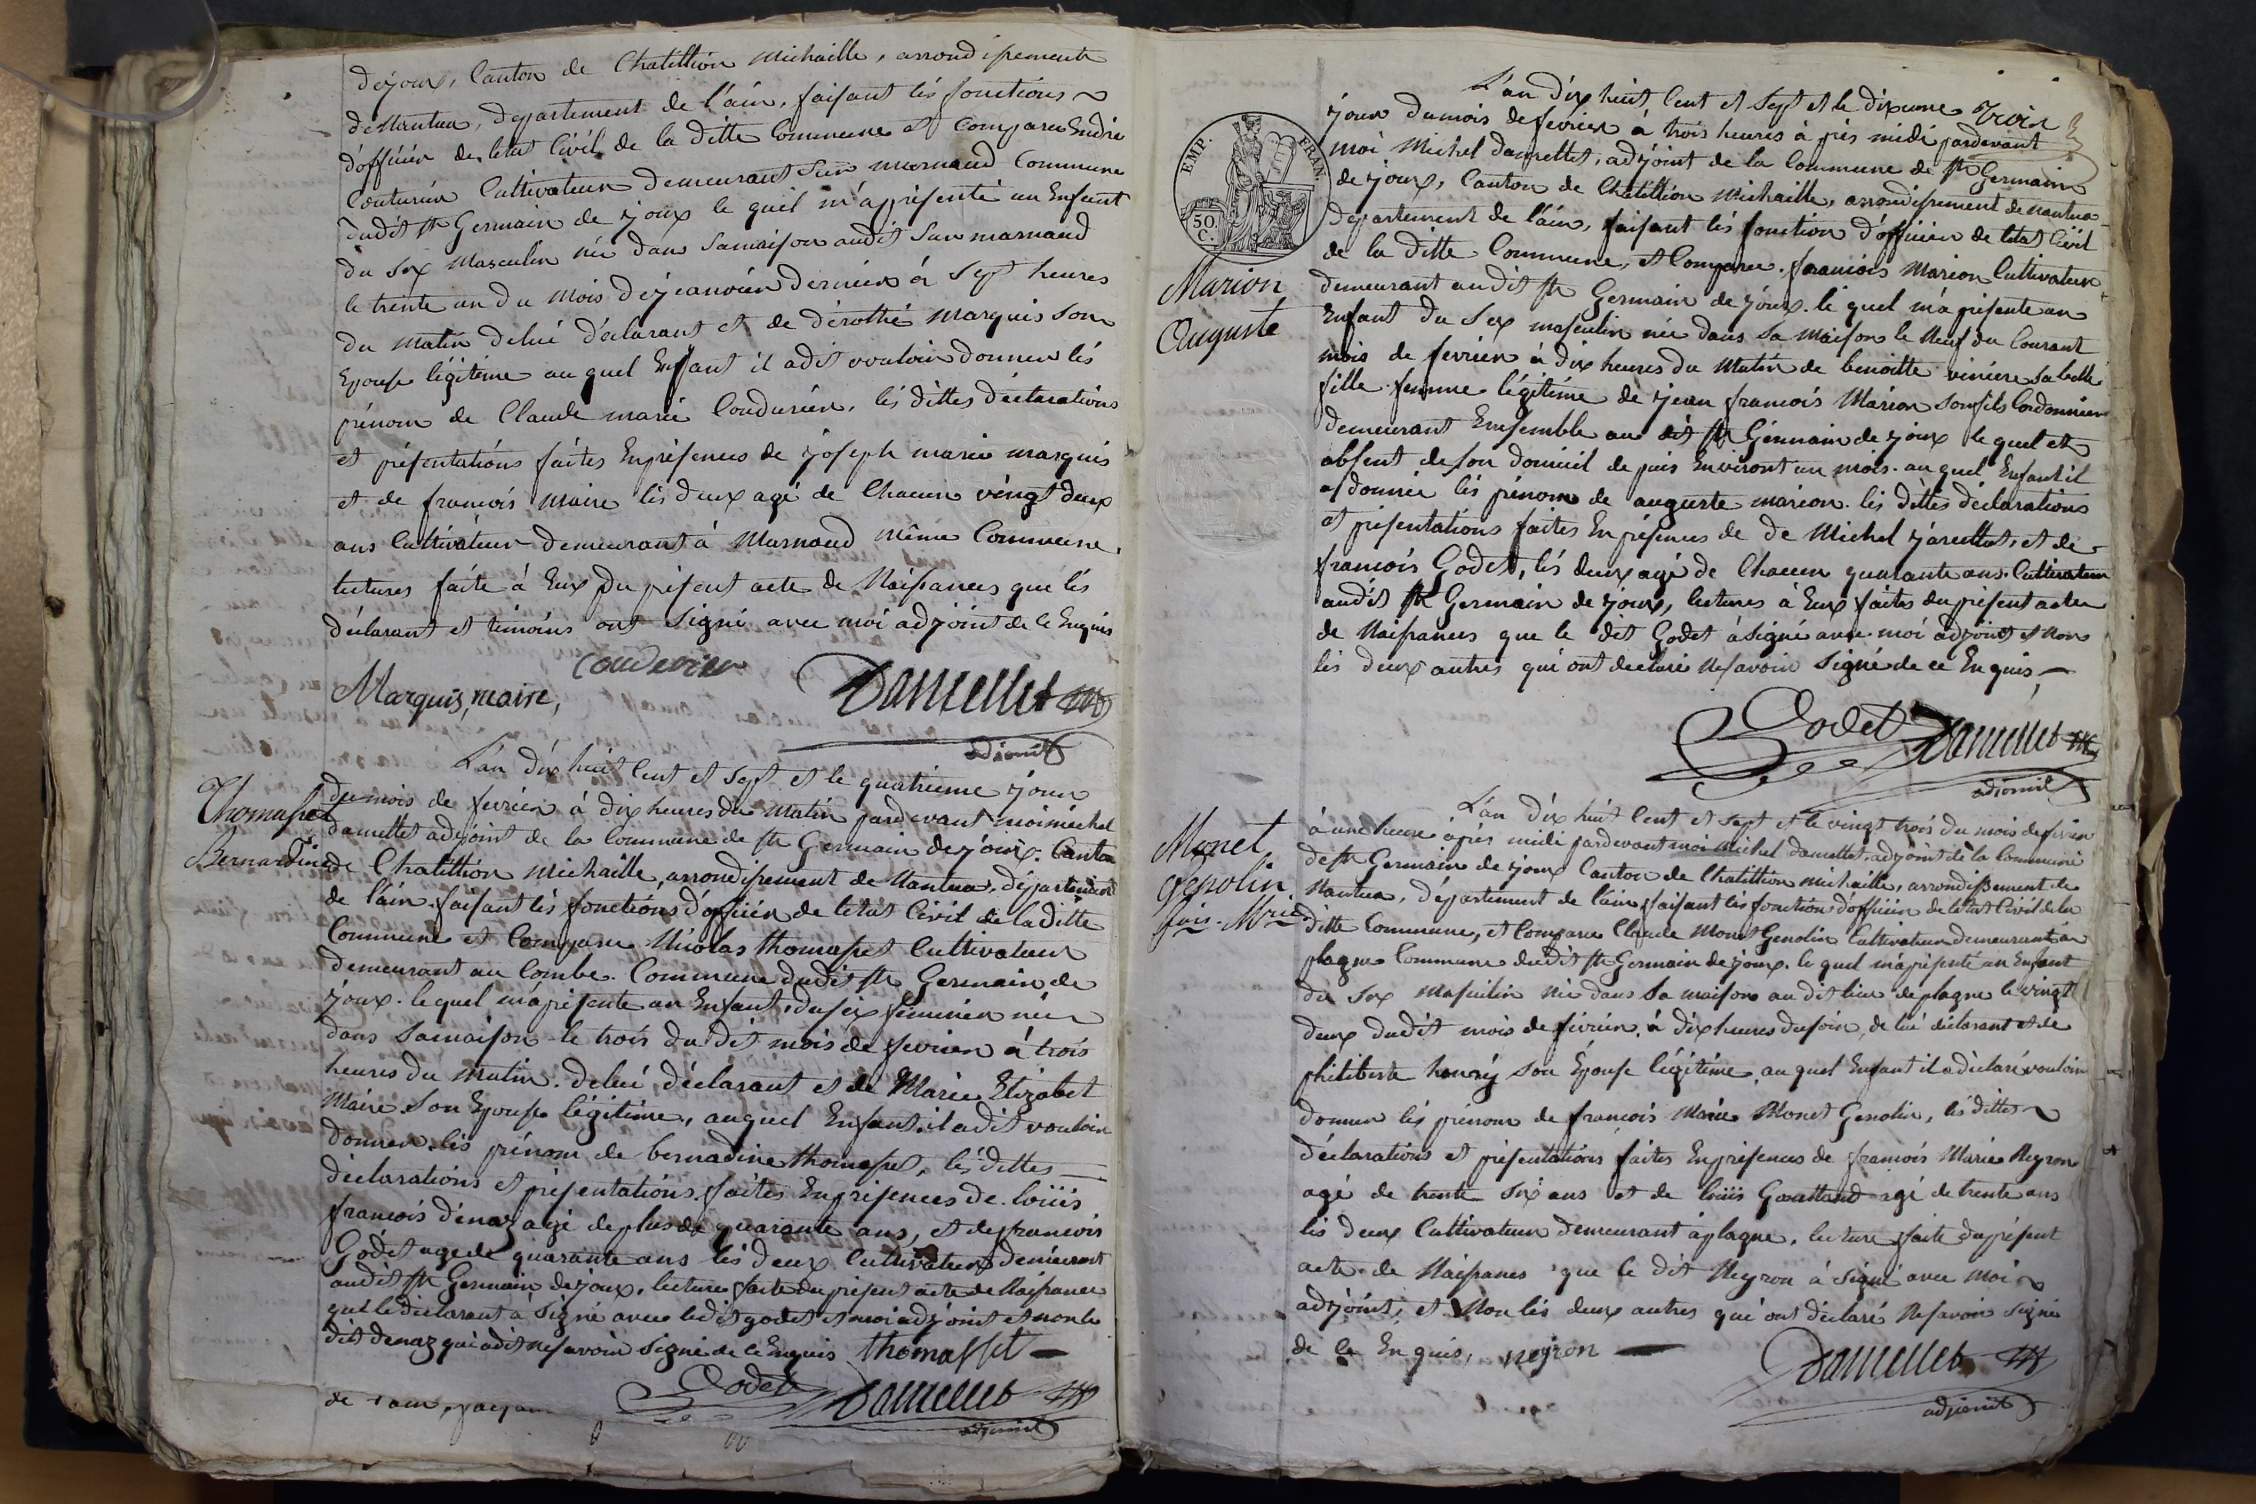 dejoux, Canton de Chatillion Michaille, arrondissement
de Nantua, departement de l'ain, faisant lés fonctions
d'officier de letat Civil de la ditte Commune et Comparu Endre
Couturier Cultivateur demeurant Sur marnaud Commune
dudit st Germain de joux le quel m'a présenté un Enfant
du sex Masculin née dans samaison audit Sur marnaud
le trente un du mois dejeanvier dernier à Sept heures
du matin delui déclarant et de dérothé marquis Son
Epouse légitime auquel Enfant il adit vouloir donner lés
prénom de Claude marie Coudurier, lés dittes déclarations
et présentations faites Enprésences de joseph marie marquis
et de francois maire lés deux agé de Chacun vingt deux
ans Cultivateur demeurant à Marnaud même Commune,
lectures faite à Eux du présent acte de Naissances que lés
déclarant et témoins ont signé avec moi adjoint de ce Enquis
Coudurier
Marquis, maire, Damettet
adjoint
Thomasset
Bernardine
L'an dix huit Cent et Sept et le quatrieme jour
du mois de fevrier à dix heures du Matin pardevant moi michel
damettet adjoint de la commune de st Germain dejoux. Canton
de Chatillion Michaille, arrondissement de Nantua, département
de l'ain. faisant lés fonctions d'officier de letat Civil de la ditte
Commune et Comparu Nicolas thomasset Cultivateur
demeurant au Combe. Commune dudit st Germain de
joux. lequel m'a présente un Enfant, du sex féminin née
dans samaison le trois du dit mois de fevrier à trois
heures du matin. delui déclarant et de Marie Elizabet
Maire son Epouse légitime, auquel Enfant, il adit vouloir
donner lés prénom de bernadine thomasset, lés dittes
déclarations et présentations faites Enprésences de louis
francois dénaz agé de plus de quarante ans, et de francois
Godet age de quarante ans lés deux Cultivateur demeurant
audit st Germain dejoux, lecture faite du présent acte de Naissance
que le déclarant a Signé avec ledit godet et moi adjoint et non le
dit denaz qui adit nesavoir signé de ce Enquis thomasset
Godet Damettet
adjoint
de l'ain, faisant
EMP. FRAN.
50 C.
Marion
Auguste
L'an dix huit Cent et Sept et le dixieme Trois
jour dumois defevrier à trois heures à près midi pardevant
moi Michel damettet, adjoint de la Commune de st Germain
de joux, Canton de Chatillion Michaille, arrondissement de nantua
departement de l'ain, faisant lés fonction d'officier de letat Civil
de la ditte Commune, et Comparu. francois Marion Cultivateur
demeurant audit st Germain de joux. le quel m'a présente un
Enfant du Sex masculin née dans sa maison le Neuf du Courant
mois de fevrier à dix heures du Matin de benoitte sa belle
fille femme légitime de jean francois Marion son fils Cordonnier
demeurant Ensemble au dit st Germain de joux le quel et
absent de son domicil de puis Environt un mois. auquel Enfant il
a donnée lés prénom de auguste marion. lés dittes déclarations
et présentations faites En présences de de Michel et de
francois Godet, lés deux agé de Chacun quarante ans. Cultivateur
audit st Germain de joux, lectures à Eux faites du présent acte
de Naissances que le dit Godet à signé avec moi adjoint et Non
lés deux autres qui ont déclaré Nesavoir Signé de ce Enquis,
Godet Damettet
adjoint
Monet
Genolin
fois. Mrie
L'an dix huit Cent et Sept et le vingt trois du mois de fevrier
à une heure à près midi pardevant moi Michel damettet adjoint de la Commune
de st Germain de joux Canton de Chatillion Michaille, arrondissement de
Nantua, département de l'ain faisant lés fonctions d'officier de letat Civil de la
ditte Commune, et Comparu Claude Monet Genolin Cultivateur demeurant à
plagne Commune dudit st Germain de joux. le quel m'a présenté un Enfant
du Sex masculin née dans Sa maison au dit lieu de plagne le vingt
deux dudit mois de fevrier. à dix heures du soir, de lui déclarant et de
philiberte henry son Épouse légitime, au quel Enfant il a déclaré vouloir
donner lés prénom de francois Marie Monet Genolin, lés dittes
déclarations et présentations faites Enprésences de francois Marie Neyron
agé de trente six ans et de louis agé de trente ans
lés deux Cultivateur demeurant à plagne, lecture faite du présent
acte de Naissances que le dit Neyron à signé avec moi
adjoint, et Non lés deux autres qui ont déclaré Nesavoir signé
de ce Enquis, neyron
Damettet
adjoint